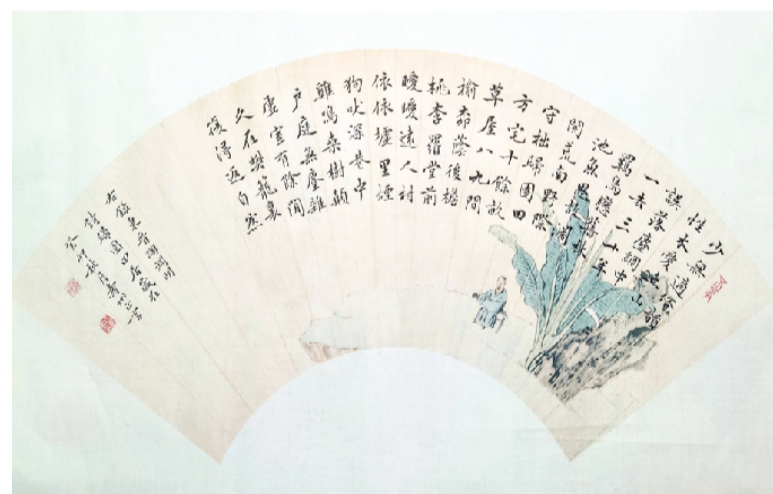 少無適俗韻
性本愛丘山
誤落塵網中
一去三十年
羈鳥戀舊林
池魚思故淵
開荒南野際
守拙歸園田
方宅十餘畝
草屋八九間
榆柳蔭後檐
桃李羅堂前
曖曖遠人村
依依墟里煙
狗吠深巷中
雞鳴桑樹顛
戶庭無塵雜
虛室有餘閒
久在樊籠裏
復得返自然
右錄東晉陶淵明
詩歸園田居歲在
癸卯秋月書